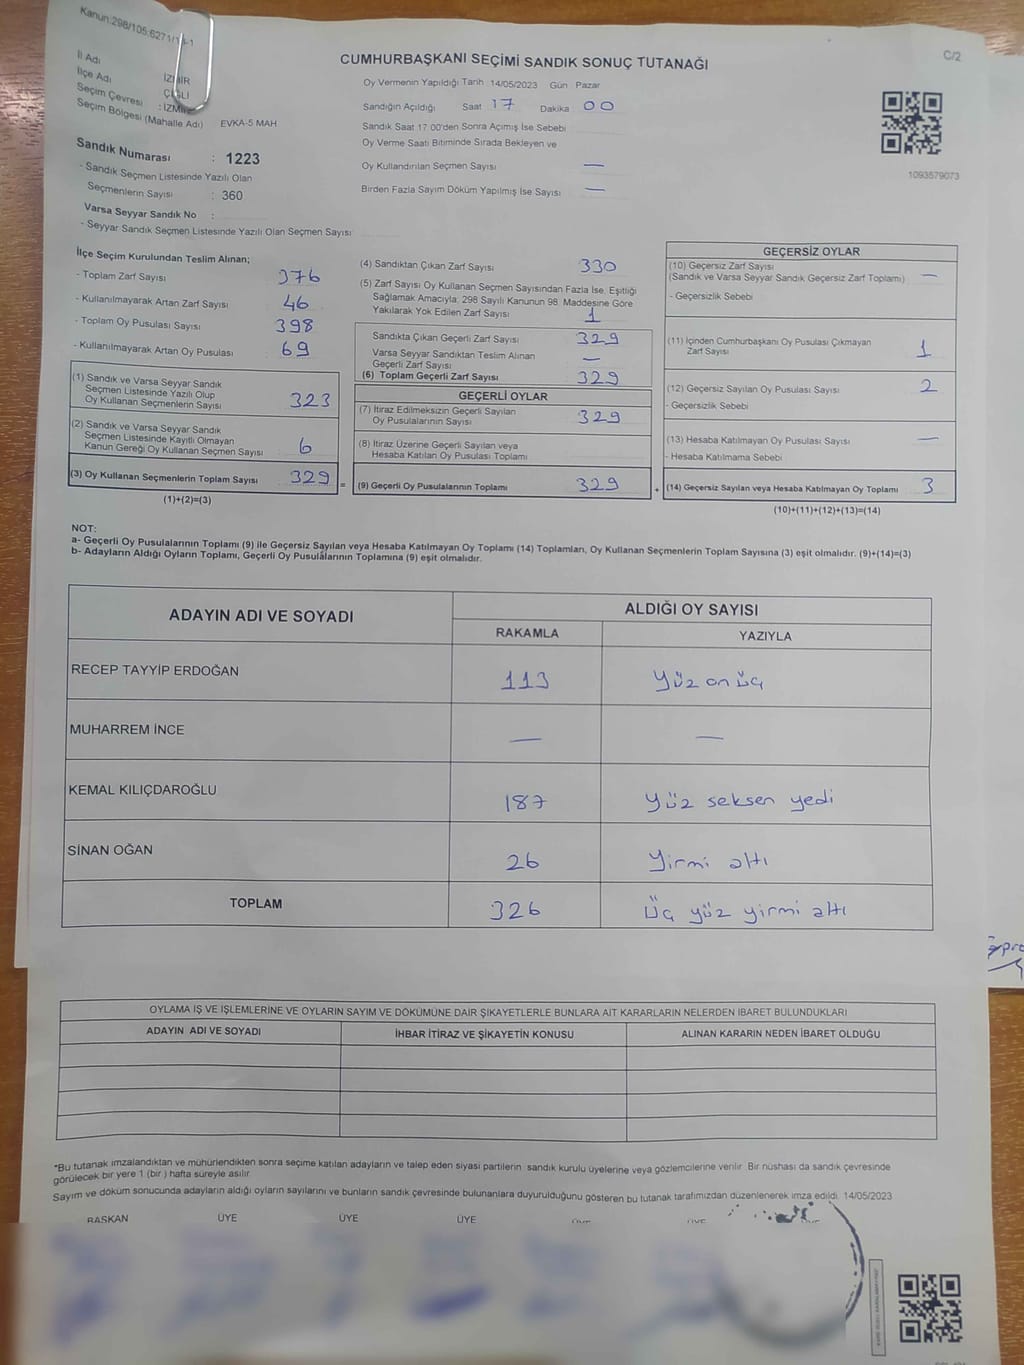 Kanun:298/105;6271/
C/2
CUMHURBAŞKANI SEÇİMİ SANDIK SONUÇ TUTANAĞI
İl Adı İZMİR
İlçe Adı ÇİĞLİ
Seçim Çevresi : İZMİR
Seçim Bölgesi (Mahalle Adı) EVKA-5 MAH
Sandık Numarası : 1223
- Sandık Seçmen Listesinde Yazılı Olan
Seçmenlerin Sayısı : 360
Varsa Seyyar Sandık No :
- Seyyar Sandık Seçmen Listesinde Yazılı Olan Seçmen Sayısı
Oy Vermenin Yapıldığı Tarih 14/05/2023 Gün Pazar
Sandığın Açıldığı Saat 17 Dakika 00
Sandık Saat 17 00'den Sonra Açımış İse Sebebi
Oy Verme Saati Bitiminde Sırada Bekleyen ve
Oy Kullandırılan Seçmen Sayısı —
Birden Fazla Sayım Döküm Yapılmış İse Sayısı —
1093579073
İlçe Seçim Kurulundan Teslim Alınan;
- Toplam Zarf Sayısı 376
- Kullanılmayarak Artan Zarf Sayısı 46
- Toplam Oy Pusulası Sayısı 398
- Kullanılmayarak Artan Oy Pusulası 69
(1) Sandık ve Varsa Seyyar Sandık
Seçmen Listesinde Yazılı Olup
Oy Kullanan Seçmenlerin Sayısı 323
(2) Sandık ve Varsa Seyyar Sandık
Seçmen Listesinde Kayıtlı Olmayan
Kanun Gereği Oy Kullanan Seçmen Sayısı 6
(3) Oy Kullanan Seçmenlerin Toplam Sayısı 329 =
(1)+(2)=(3)
(4) Sandıktan Çıkan Zarf Sayısı 330
(5) Zarf Sayısı Oy Kullanan Seçmen Sayısından Fazla İse, Eşitliği
Sağlamak Amacıyla, 298 Sayılı Kanunun 98. Maddesine Göre
Yakılarak Yok Edilen Zarf Sayısı 1
Sandıkta Çıkan Geçerli Zarf Sayısı 329
Varsa Seyyar Sandıktan Teslim Alınan
Geçerli Zarf Sayısı —
(6) Toplam Geçerli Zarf Sayısı 329
GEÇERLİ OYLAR
(7) İtiraz Edilmeksizin Geçerli Sayılan
Oy Pusulalarının Sayısı 329
(8) İtiraz Üzerine Geçerli Sayılan veya
Hesaba Katılan Oy Pusulası Toplamı
(9) Geçerli Oy Pusulalarının Toplamı 329 +
GEÇERSİZ OYLAR
(10) Geçersiz Zarf Sayısı
(Sandık ve Varsa Seyyar Sandık Geçersiz Zarf Toplamı) —
- Geçersizlik Sebebi
(11) İçinden Cumhurbaşkanı Oy Pusulası Çıkmayan
Zarf Sayısı 1
(12) Geçersiz Sayılan Oy Pusulası Sayısı 2
- Geçersizlik Sebebi
(13) Hesaba Katılmayan Oy Pusulası Sayısı —
- Hesaba Katılmama Sebebi
(14) Geçersiz Sayılan veya Hesaba Katılmayan Oy Toplamı 3
(10)+(11)+(12)+(13)=(14)
NOT:
a- Geçerli Oy Pusulalarının Toplamı (9) ile Geçersiz Sayılan veya Hesaba Katılmayan Oy Toplamı (14) Toplamları, Oy Kullanan Seçmenlerin Toplam Sayısına (3) eşit olmalıdır. (9)+(14)=(3)
b- Adayların Aldığı Oyların Toplamı, Geçerli Oy Pusulalarının Toplamına (9) eşit olmalıdır.
ADAYIN ADI VE SOYADI ALDIĞI OY SAYISI
RAKAMLA YAZIYLA
RECEP TAYYİP ERDOĞAN 113 Yüz on üç
MUHARREM İNCE — —
KEMAL KILIÇDAROĞLU 187 Yüz seksen yedi
SİNAN OĞAN 26 Yirmi altı
TOPLAM 326 Üç yüz yirmi altı
OYLAMA İŞ VE İŞLEMLERİNE VE OYLARIN SAYIM VE DÖKÜMÜNE DAİR ŞİKAYETLERLE BUNLARA AİT KARARLARIN NELERDEN İBARET BULUNDUKLARI
ADAYIN ADI VE SOYADI İHBAR İTİRAZ VE ŞİKAYETİN KONUSU ALINAN KARARIN NEDEN İBARET OLDUĞU
*Bu tutanak imzalandıktan ve mühürlendikten sonra seçime katılan adayların ve talep eden siyasi partilerin sandık kurulu üyelerine veya gözlemcilerine verilir. Bir nüshası da sandık çevresinde
görülecek bir yere 1 (bir ) hafta süreyle asılır.
Sayım ve döküm sonucunda adayların aldığı oyların sayılarını ve bunların sandık çevresinde bulunanlara duyurulduğunu gösteren bu tutanak tarafımızdan düzenlenerek imza edildi. 14/05/2023
BAŞKAN ÜYE ÜYE ÜYE ÜYE ÜYE ÜYE